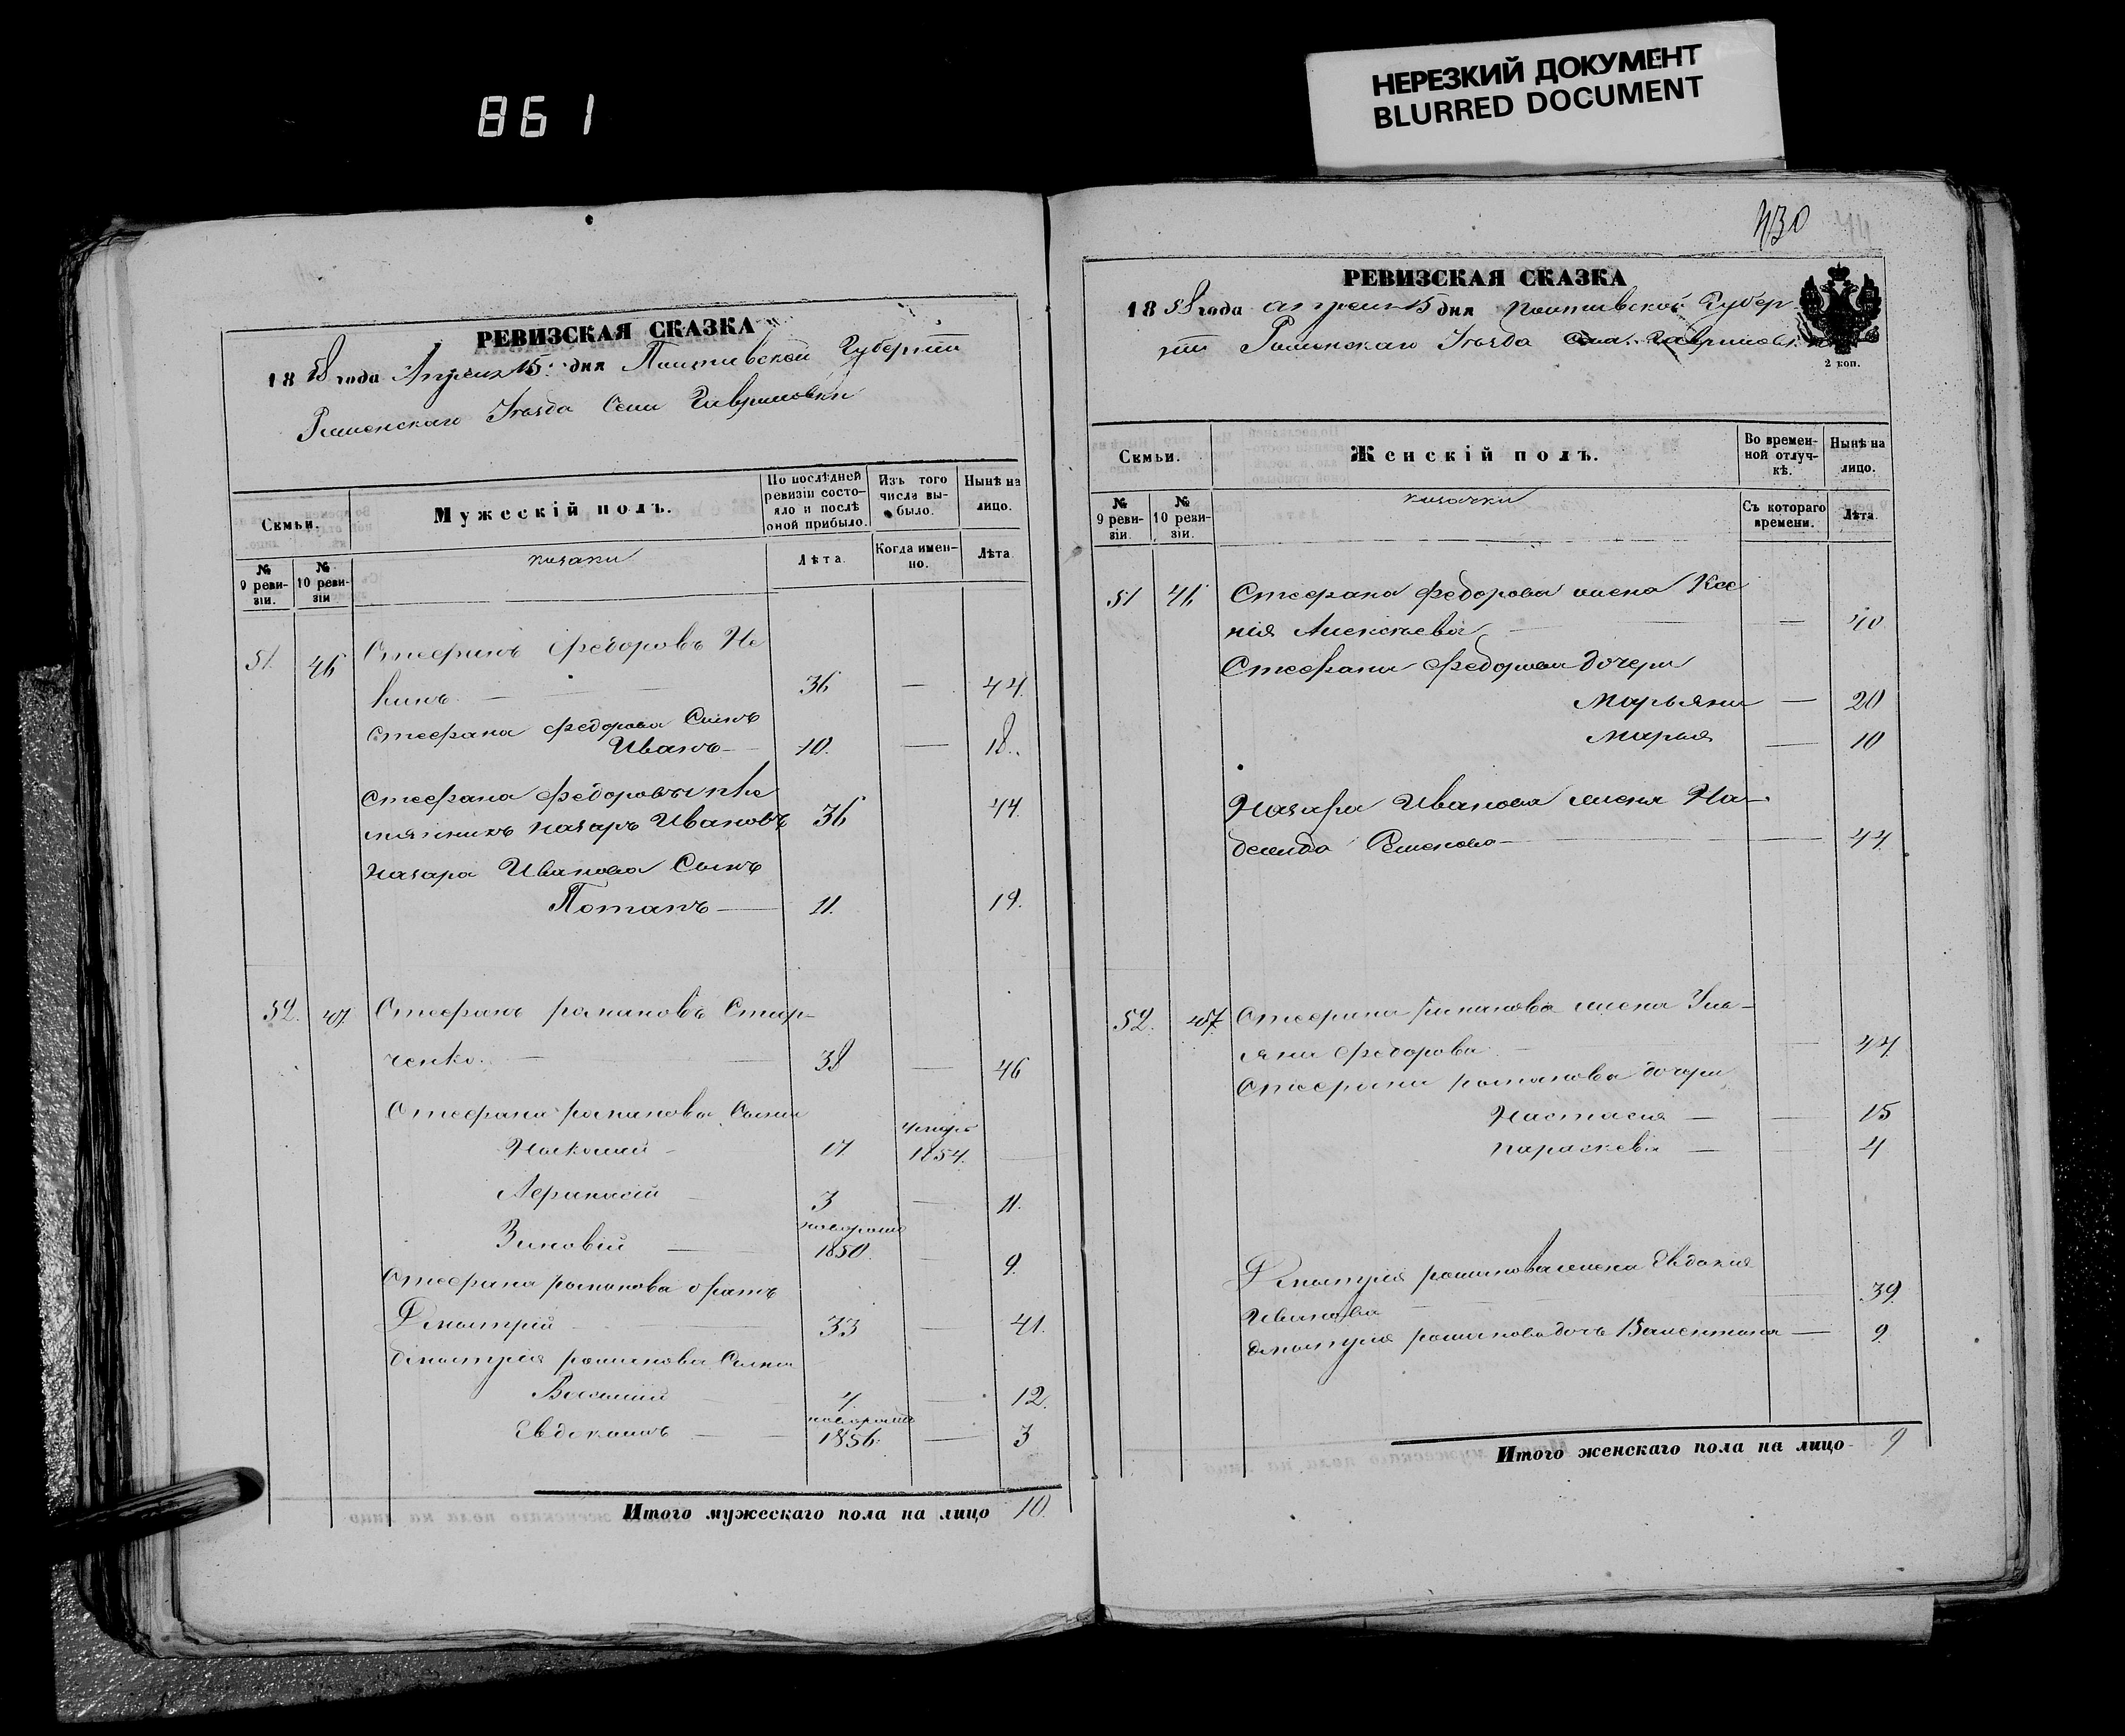 861
НЕРЕЗКИЙ ДОКУМЕНТ
BLURRED DOCUMENT
РЕВИЗСКАЯ СКАЗКА
1858 года Апреля 15 дня Полтавской Губерніи
Роменскаго Уезда Села Гавриловки
Семьи.
Мужескій полъ.
По послѣдней ревизіи состояло и послѣ оной прибыло.
Изъ того числа выбыло.
Нынѣ на лицо.
№ 9 ревизіи.
№ 10 ревизіи
казаки
Лѣта.
Когда именно.
Лѣта.
51. 46 Стефанъ Федоровъ
36 — 44.
Стефана Федорова Сынъ
Иванъ — 10. — 18.
Стефана Федорова пле
мянникъ Назаръ Ивановъ 36 44.
Назара Иванова Сынъ
Потапъ — 11. 19.
52. 47. Стефанъ Романовъ
ченко. — 38 — 46
Стефана Романова Сыны
17 1854. —
Афанасій 3 — 11.
Зиновій — новорожд 1850. — 9.
Стефана Романова братъ
Дмитрій 33 — 41.
Дмитрія Романова Сыны
Василій 4. — 12.
Евдокимъ — новорожд 1856. — 3
Итого мужескаго пола на лицо 10.
430
44
РЕВИЗСКАЯ СКАЗКА
1858 года апреля 15 дня Полтавской Губер
ніи Роменскаго Уезда Села Гавриловки
2 коп.
Семьи.
Женскій полъ.
Во временной отлучкѣ.
Нынѣ на лицо.
№ 9 ревизіи.
№ 10 ревизіи.
казачки
Съ котораго времени.
Лѣта.
51 46 Стефана Федорова жена Ксе
нія Алексѣева — — 40
Стефана Федорова дочери
Марьяна — 20
Марья — 10
Назара Иванова жена На-
дежда Семенова — 44
52. 47 Стефана Романова жена Уль-
яна Федорова — 44
Стефана Романова дочери
Настасия — — 15
Параскева — — 4
Дмитрія Романова жена Евдокия
Иванова 39.
Дмитрія Романова дочь Валентина — 9.
Итого женскаго пола на лицо 9